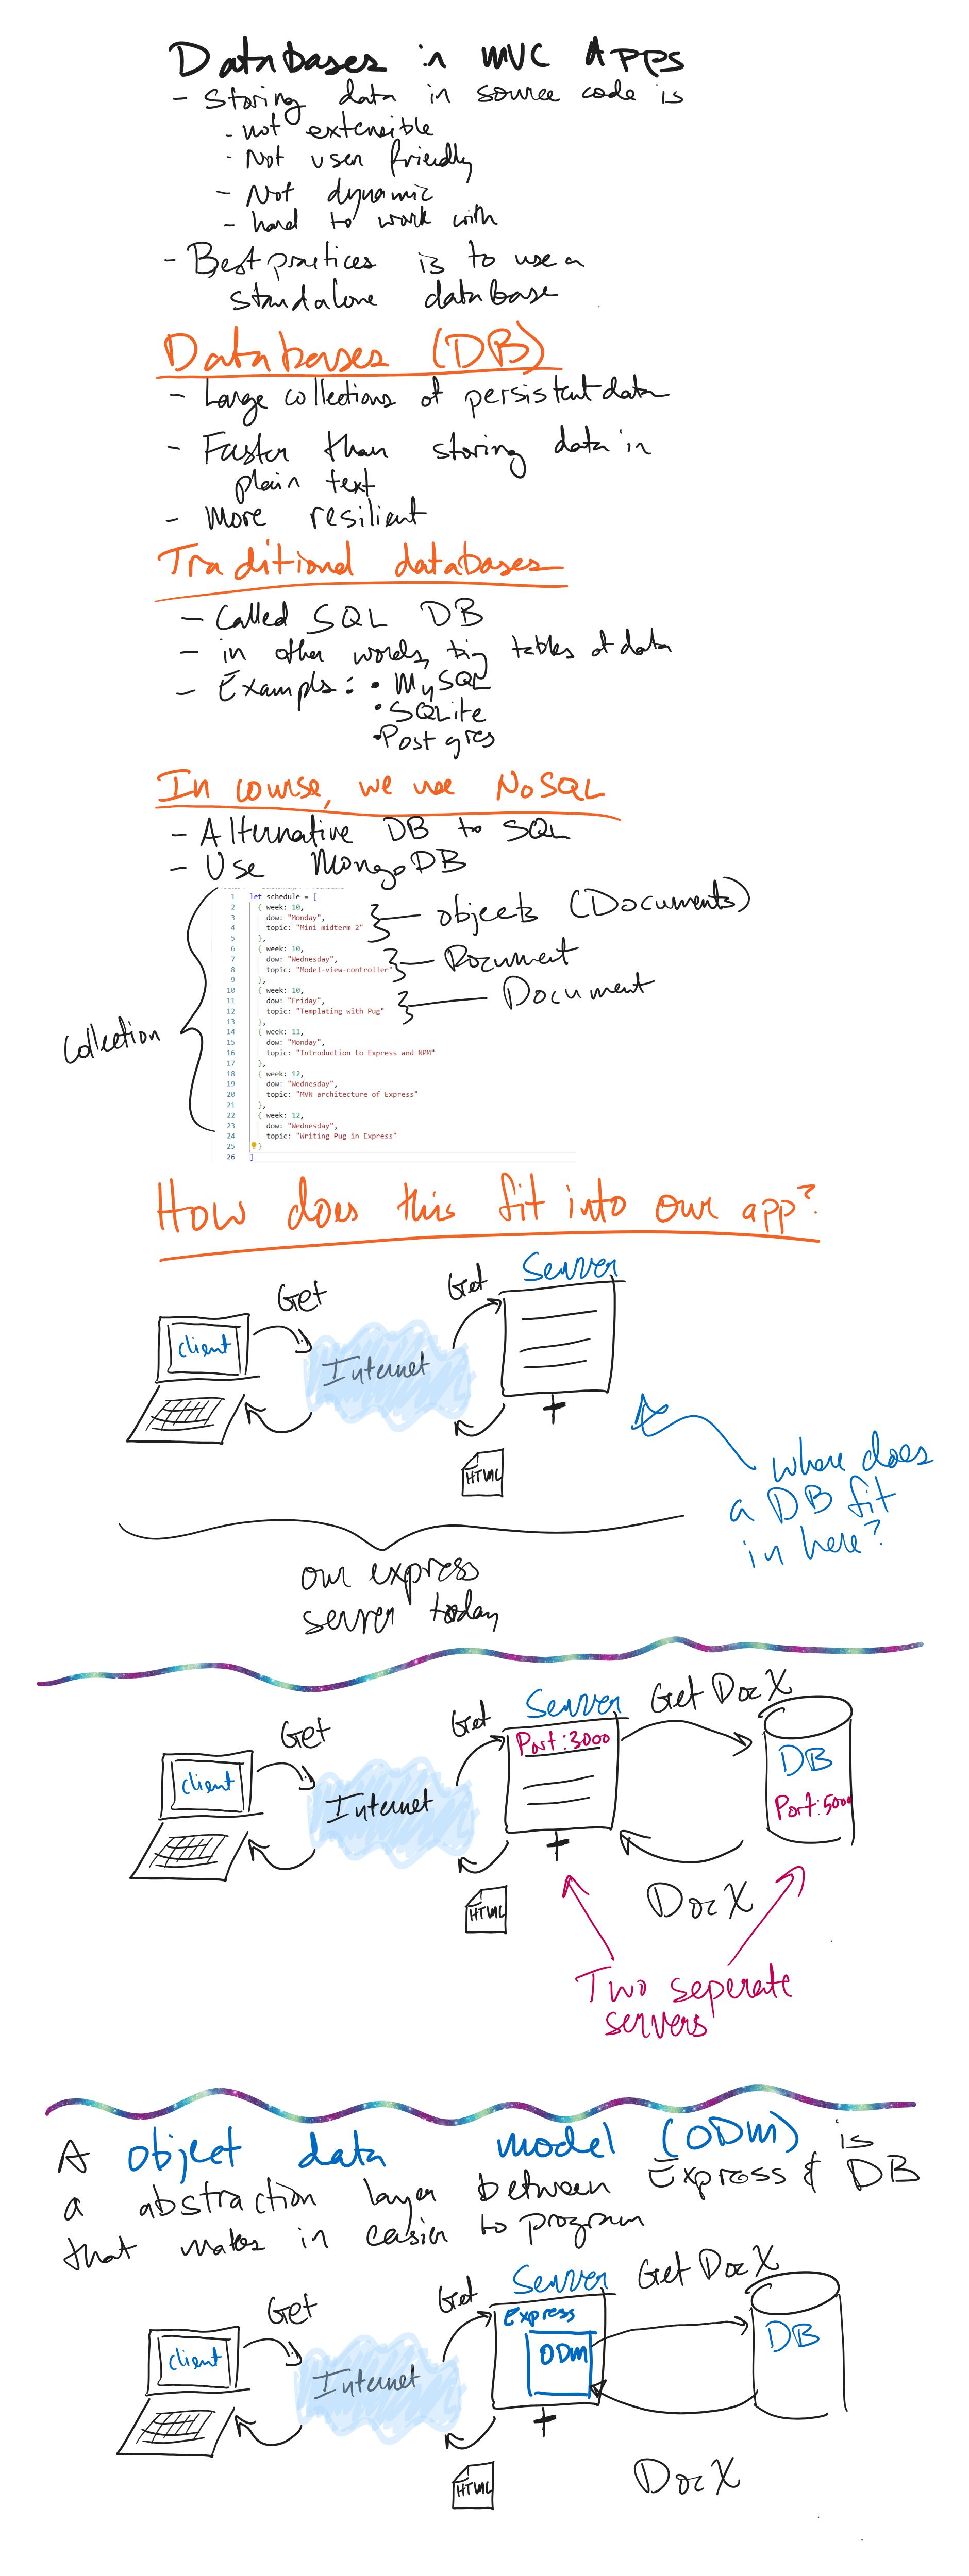 Databases in MVC Apps
- Storing data in source code is
- not extensible
- Not user friendly
- Not dynamic
- hard to work with
- Best practices is to use a
standalone database
Databases (DB)
- Large collections of persistent data
- Faster than storing data in
plain text
- More resilient
Traditional databases
- Called SQL DB
- in other words, big tables of data
- Example: • MySQL
• SQLite
• Postgres
In course, we use NoSQL
- Alternative DB to SQL
- Use MongoDB
1 let schedule = [
2 { week: 10,
3 dow: "Monday",
4 topic: "Mini midterm 2"
5 },
6 { week: 10,
7 dow: "Wednesday",
8 topic: "Model-view-controller"
9 },
10 { week: 10,
11 dow: "Friday",
12 topic: "Templating with Pug"
13 },
14 { week: 11,
15 dow: "Monday",
16 topic: "Introduction to Express and NPM"
17 },
18 { week: 12,
19 dow: "Wednesday",
20 topic: "MVN architecture of Express"
21 },
22 { week: 12,
23 dow: "Wednesday",
24 topic: "Writing Pug in Express"
25 }
26 ]
objects (Documents)
Document
Document
Collection
How does this fit into our app?
Server
Get
Get
client
Internet
HTML
where does
a DB fit
in here?
our express
server today
Server
Get Doc X
Get
Get
Port:3000
client
Internet
DB
Port:5000
HTML
Doc X
Two seperate
servers
A object data model (ODM) is
a abstraction layer between Express & DB
that makes in easier to program
Server
Get Doc X
Get
Get
Express
ODM
client
Internet
DB
HTML
Doc X